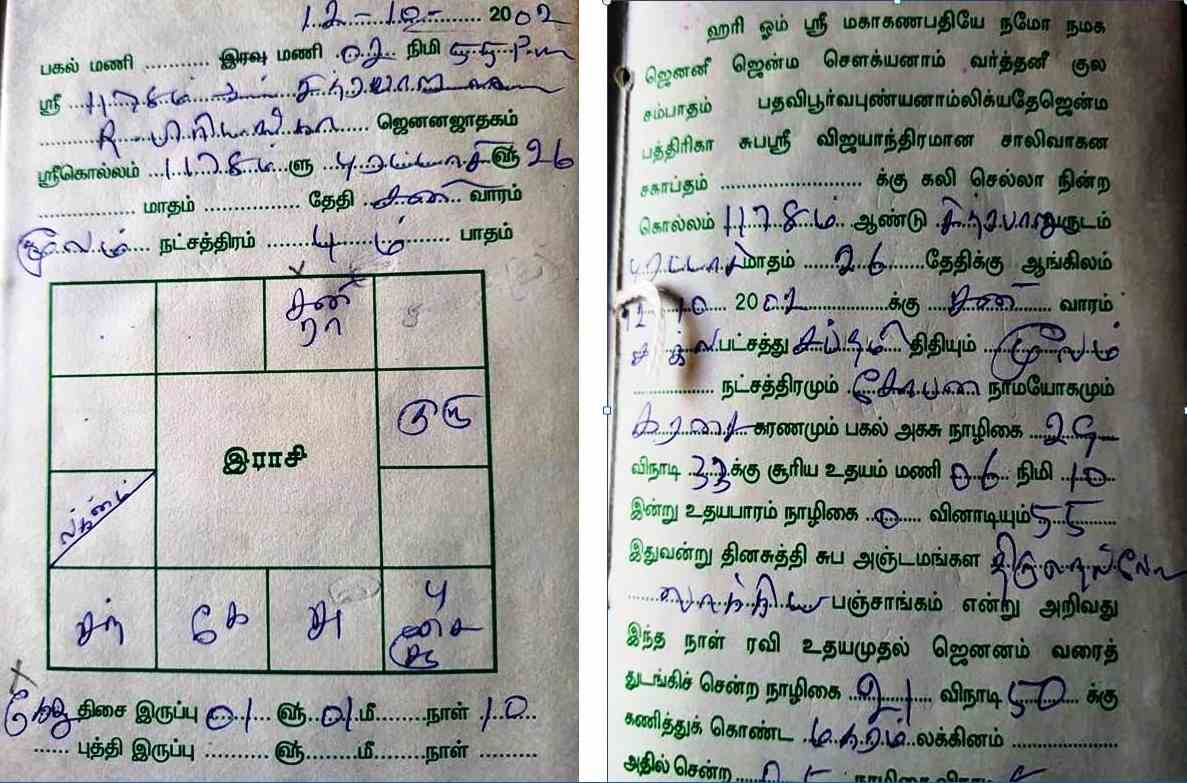 12-10- 2002
பகல் மணி ........... இரவு மணி .02.. நிமி 55 P.m
ஸ்ரீ ..1178ம்
R ஜெனனஜாதகம்
ஸ்ரீகொல்லம் ...1178ம்...ளு ௵ 26
................ மாதம் ................ தேதி .சனி.. வாரம்
மூலம்.... நட்சத்திரம் ........4 ம்........ பாதம்
சனி
ரா
குரு
இராசி
லக்னம்
சந்
கே
சு
பு
செ
கேது திசை இருப்பு 01.. ௵..01.மீ........நாள் 10...
...... புத்தி இருப்பு ........... ௵....மீ........நாள் .........
ஹரி ஓம் ஸ்ரீ மகாகணபதியே நமோ நமக
ஜெனனீ ஜென்ம சௌக்யனாம் வர்த்தனீ குல
சம்பாதம் பதவிபூர்வபுண்யனாம்லிக்யதேஜென்ம
பத்திரிகா சுபஸ்ரீ விஜயாந்திரமான சாலிவாகன
சகாப்தம் ........................ க்கு கலி செல்லா நின்ற
கொல்லம் 1178ம்.. ஆண்டு சித்ரபானுவருடம்
புரட்டாசிமாதம் .....26......தேதிக்கு ஆங்கிலம்
12 10.... 2002..............க்கு ...சனி.... வாரம்
சுக்ல பட்சத்து சப்தமி திதியும் ..மூலம்
.............. நட்சத்திரமும் சோபன நாமயோகமும்
கரசை கரணமும் பகல் அகசு நாழிகை ..29
விநாடி ..33க்கு சூரிய உதயம் மணி 06 நிமி ..10..
இன்று உதயபாரம் நாழிகை ..0..... வினாடியும்55
இதுவன்று தினசுத்தி சுப அஞ்டமங்கள
வாக்கிய பஞ்சாங்கம் என்று அறிவது
இந்த நாள் ரவி உதயமுதல் ஜெனனம் வரைத்
துடங்கிச் சென்ற நாழிகை ..21..... விநாடி 50... க்கு
கணித்துக் கொண்ட .மகரம். லக்கினம் ..................
அதில் சென்ற